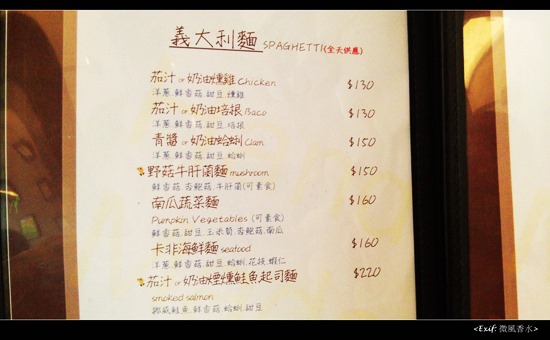 義大利麵 SPAGHETTI(全天供應)
茄汁 or 奶油燻雞 Chicken $130
洋蔥.鮮香菇.甜豆.燻雞
茄汁 or 奶油培根 Baco $130
洋蔥.鮮香菇.甜豆.培根
青醬 or 奶油蛤蜊 Clam $150
洋蔥.鮮香菇.甜豆.蛤蜊
野菇牛肝菌麵 mushroom $150
鮮香菇.杏鮑菇.牛肝菌(可素食)
南瓜蔬菜麵 $160
Pumpkin Vegetables (可素食)
鮮香菇.甜豆.玉米筍.杏鮑菇.南瓜
卡非海鮮麵 seafood $160
洋蔥.鮮香菇.甜豆.蛤蜊.花枝.蝦仁
茄汁 or 奶油煙燻鮭魚起司麵 $220
smoked salmon
挪威鮭魚.鮮香菇.蛤蜊.甜豆
<Exif: 微風香水>